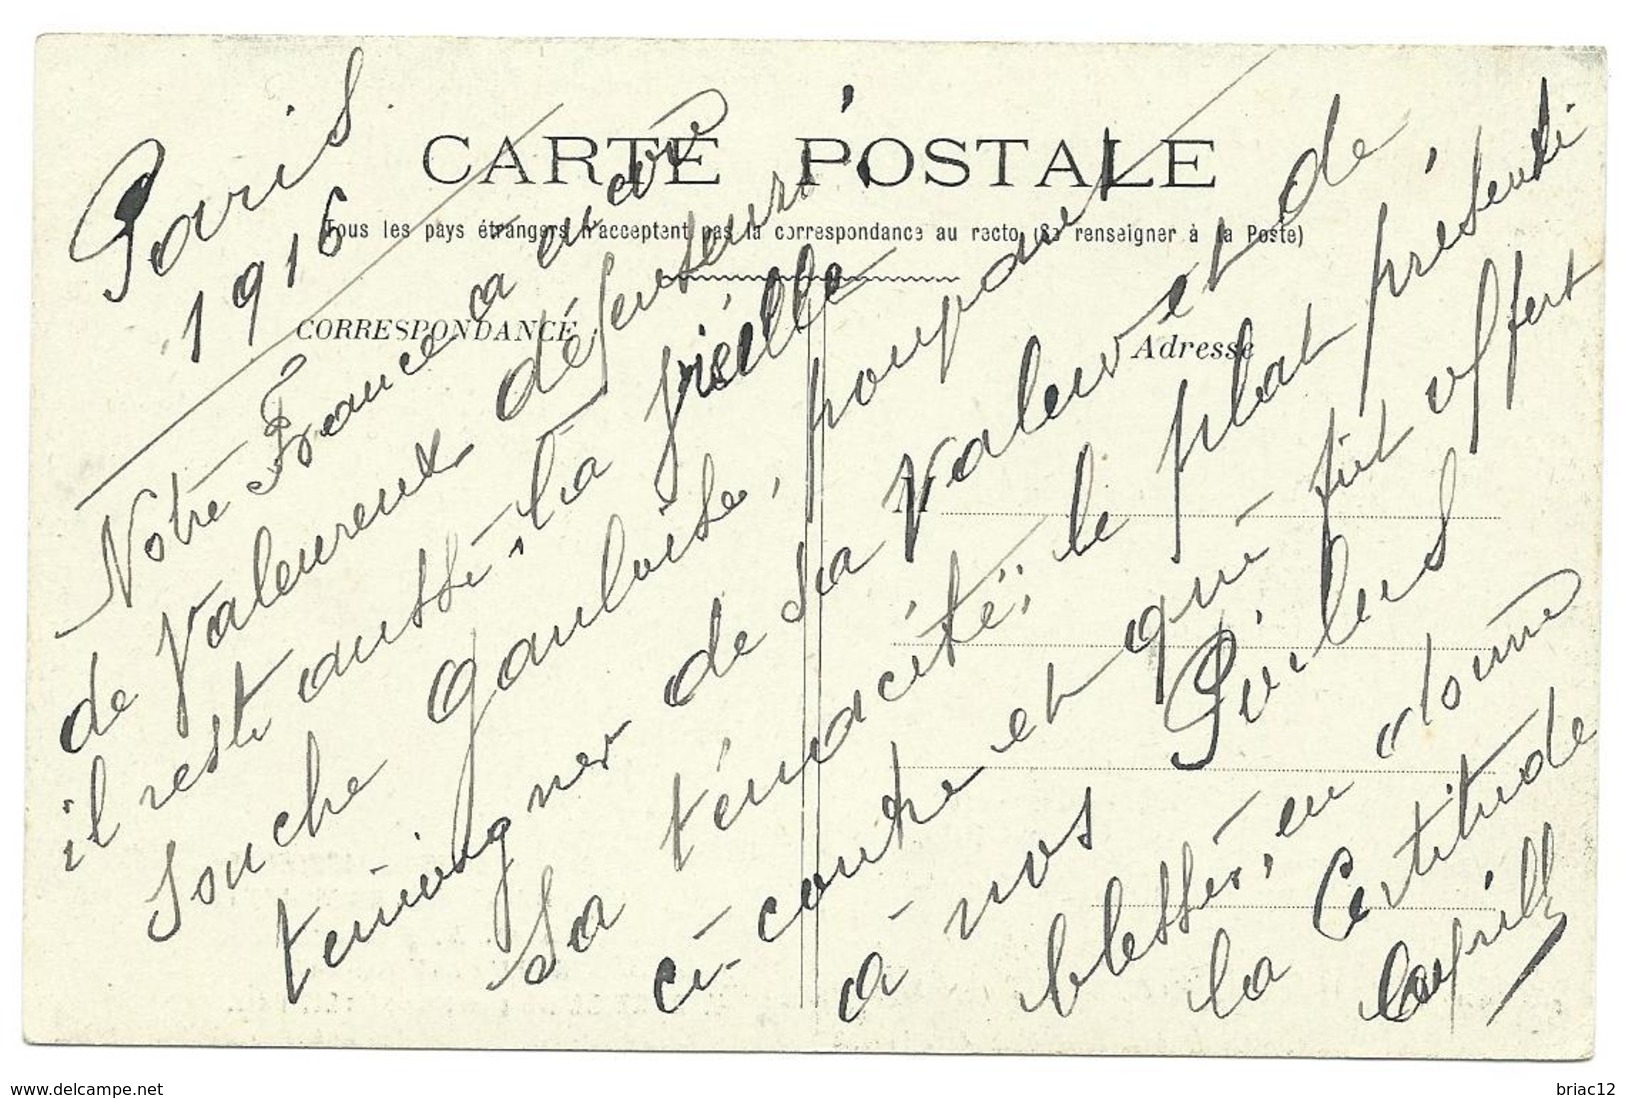 CARTE POSTALE
Tous les pays étrangers n'acceptent pas la correspondance au recto (Se renseigner à la Poste)
CORRESPONDANCE
Adresse
M
Paris
1916
Notre France a encore
de Valeureux défenseurs.
il reste aussi, la vieille
souche Gauloise, pouvant
témoigner de sa Valeur et de
sa ténacité; le plat présenté
ci-contre et qui fut offert
à nos Poilus
blessés, en donne
la Certitude
www.delcampe.net
briac12